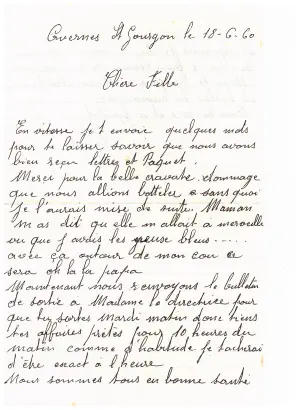 Overnes St Gourgon le 18-6-60
Chère Fille
En vitesse je t envoie quelques mots
pour te laisser savoir que nous avons
bien reçu lettres et Paquet.
Merci pour la belle cravate. dommage
que nous allions botteler sans quoi
je l'aurais mise de suite. Maman
m as dit qu elle m allait a merveille
vu que j avais les yeuse bleus.....
avec ça autour de mon cou ce
sera oh la la papa
Maintenant nous renvoyons le bulletin
de sortie a Madame la directrice pour
que tu sortes Mardi matin donc tiens
tes affaires prêtes pour 10 heures du
matin comme d'habitude je tacherai
d'être exact a l heure
Nous sommes tous en bonne santé